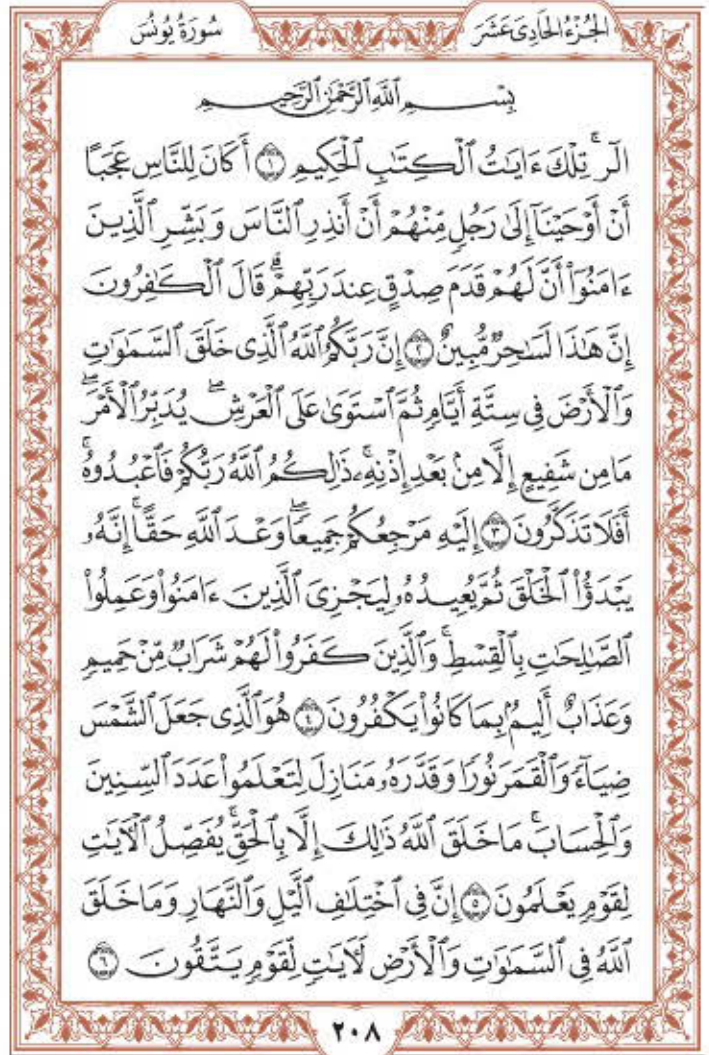 الجُزْءُ الحَادِي عَشَرَ سُورَةُ يُونُسَ
بِسْمِ ٱللَّهِ ٱلرَّحْمَٰنِ ٱلرَّحِيمِ
الٓرۚ تِلْكَ ءَايَٰتُ ٱلْكِتَٰبِ ٱلْحَكِيمِ ١ أَكَانَ لِلنَّاسِ عَجَبًا
أَنْ أَوْحَيْنَآ إِلَىٰ رَجُلٍ مِّنْهُمْ أَنْ أَنذِرِ ٱلنَّاسَ وَبَشِّرِ ٱلَّذِينَ
ءَامَنُوٓا۟ أَنَّ لَهُمْ قَدَمَ صِدْقٍ عِندَ رَبِّهِمْۗ قَالَ ٱلْكَٰفِرُونَ
إِنَّ هَٰذَا لَسَٰحِرٌ مُّبِينٌ ٢ إِنَّ رَبَّكُمُ ٱللَّهُ ٱلَّذِى خَلَقَ ٱلسَّمَٰوَٰتِ
وَٱلْأَرْضَ فِى سِتَّةِ أَيَّامٍ ثُمَّ ٱسْتَوَىٰ عَلَى ٱلْعَرْشِۖ يُدَبِّرُ ٱلْأَمْرَۖ
مَا مِن شَفِيعٍ إِلَّا مِنۢ بَعْدِ إِذْنِهِۦۚ ذَٰلِكُمُ ٱللَّهُ رَبُّكُمْ فَٱعْبُدُوهُۚ
أَفَلَا تَذَكَّرُونَ ٣ إِلَيْهِ مَرْجِعُكُمْ جَمِيعًاۖ وَعْدَ ٱللَّهِ حَقًّاۚ إِنَّهُۥ
يَبْدَؤُا۟ ٱلْخَلْقَ ثُمَّ يُعِيدُهُۥ لِيَجْزِىَ ٱلَّذِينَ ءَامَنُوا۟ وَعَمِلُوا۟
ٱلصَّٰلِحَٰتِ بِٱلْقِسْطِۚ وَٱلَّذِينَ كَفَرُوا۟ لَهُمْ شَرَابٌ مِّنْ حَمِيمٍ
وَعَذَابٌ أَلِيمٌۢ بِمَا كَانُوا۟ يَكْفُرُونَ ٤ هُوَ ٱلَّذِى جَعَلَ ٱلشَّمْسَ
ضِيَآءً وَٱلْقَمَرَ نُورًا وَقَدَّرَهُۥ مَنَازِلَ لِتَعْلَمُوا۟ عَدَدَ ٱلسِّنِينَ
وَٱلْحِسَابَۚ مَا خَلَقَ ٱللَّهُ ذَٰلِكَ إِلَّا بِٱلْحَقِّۚ يُفَصِّلُ ٱلْءَايَٰتِ
لِقَوْمٍ يَعْلَمُونَ ٥ إِنَّ فِى ٱخْتِلَٰفِ ٱلَّيْلِ وَٱلنَّهَارِ وَمَا خَلَقَ
ٱللَّهُ فِى ٱلسَّمَٰوَٰتِ وَٱلْأَرْضِ لَءَايَٰتٍ لِّقَوْمٍ يَتَّقُونَ ٦
٢٠٨